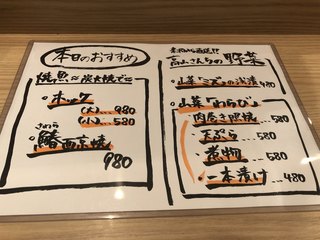 本日のおすすめ
焼魚は炭火焼で
・ホッケ
(大)…980
(小)…580
さわら
・鰆西京焼
980
高山さんちの野菜
・山菜「こごみ」の浅漬
・山菜「わらび」
・肉巻き照焼…580
・天ぷら…580
・煮物…580
・一本漬け…480